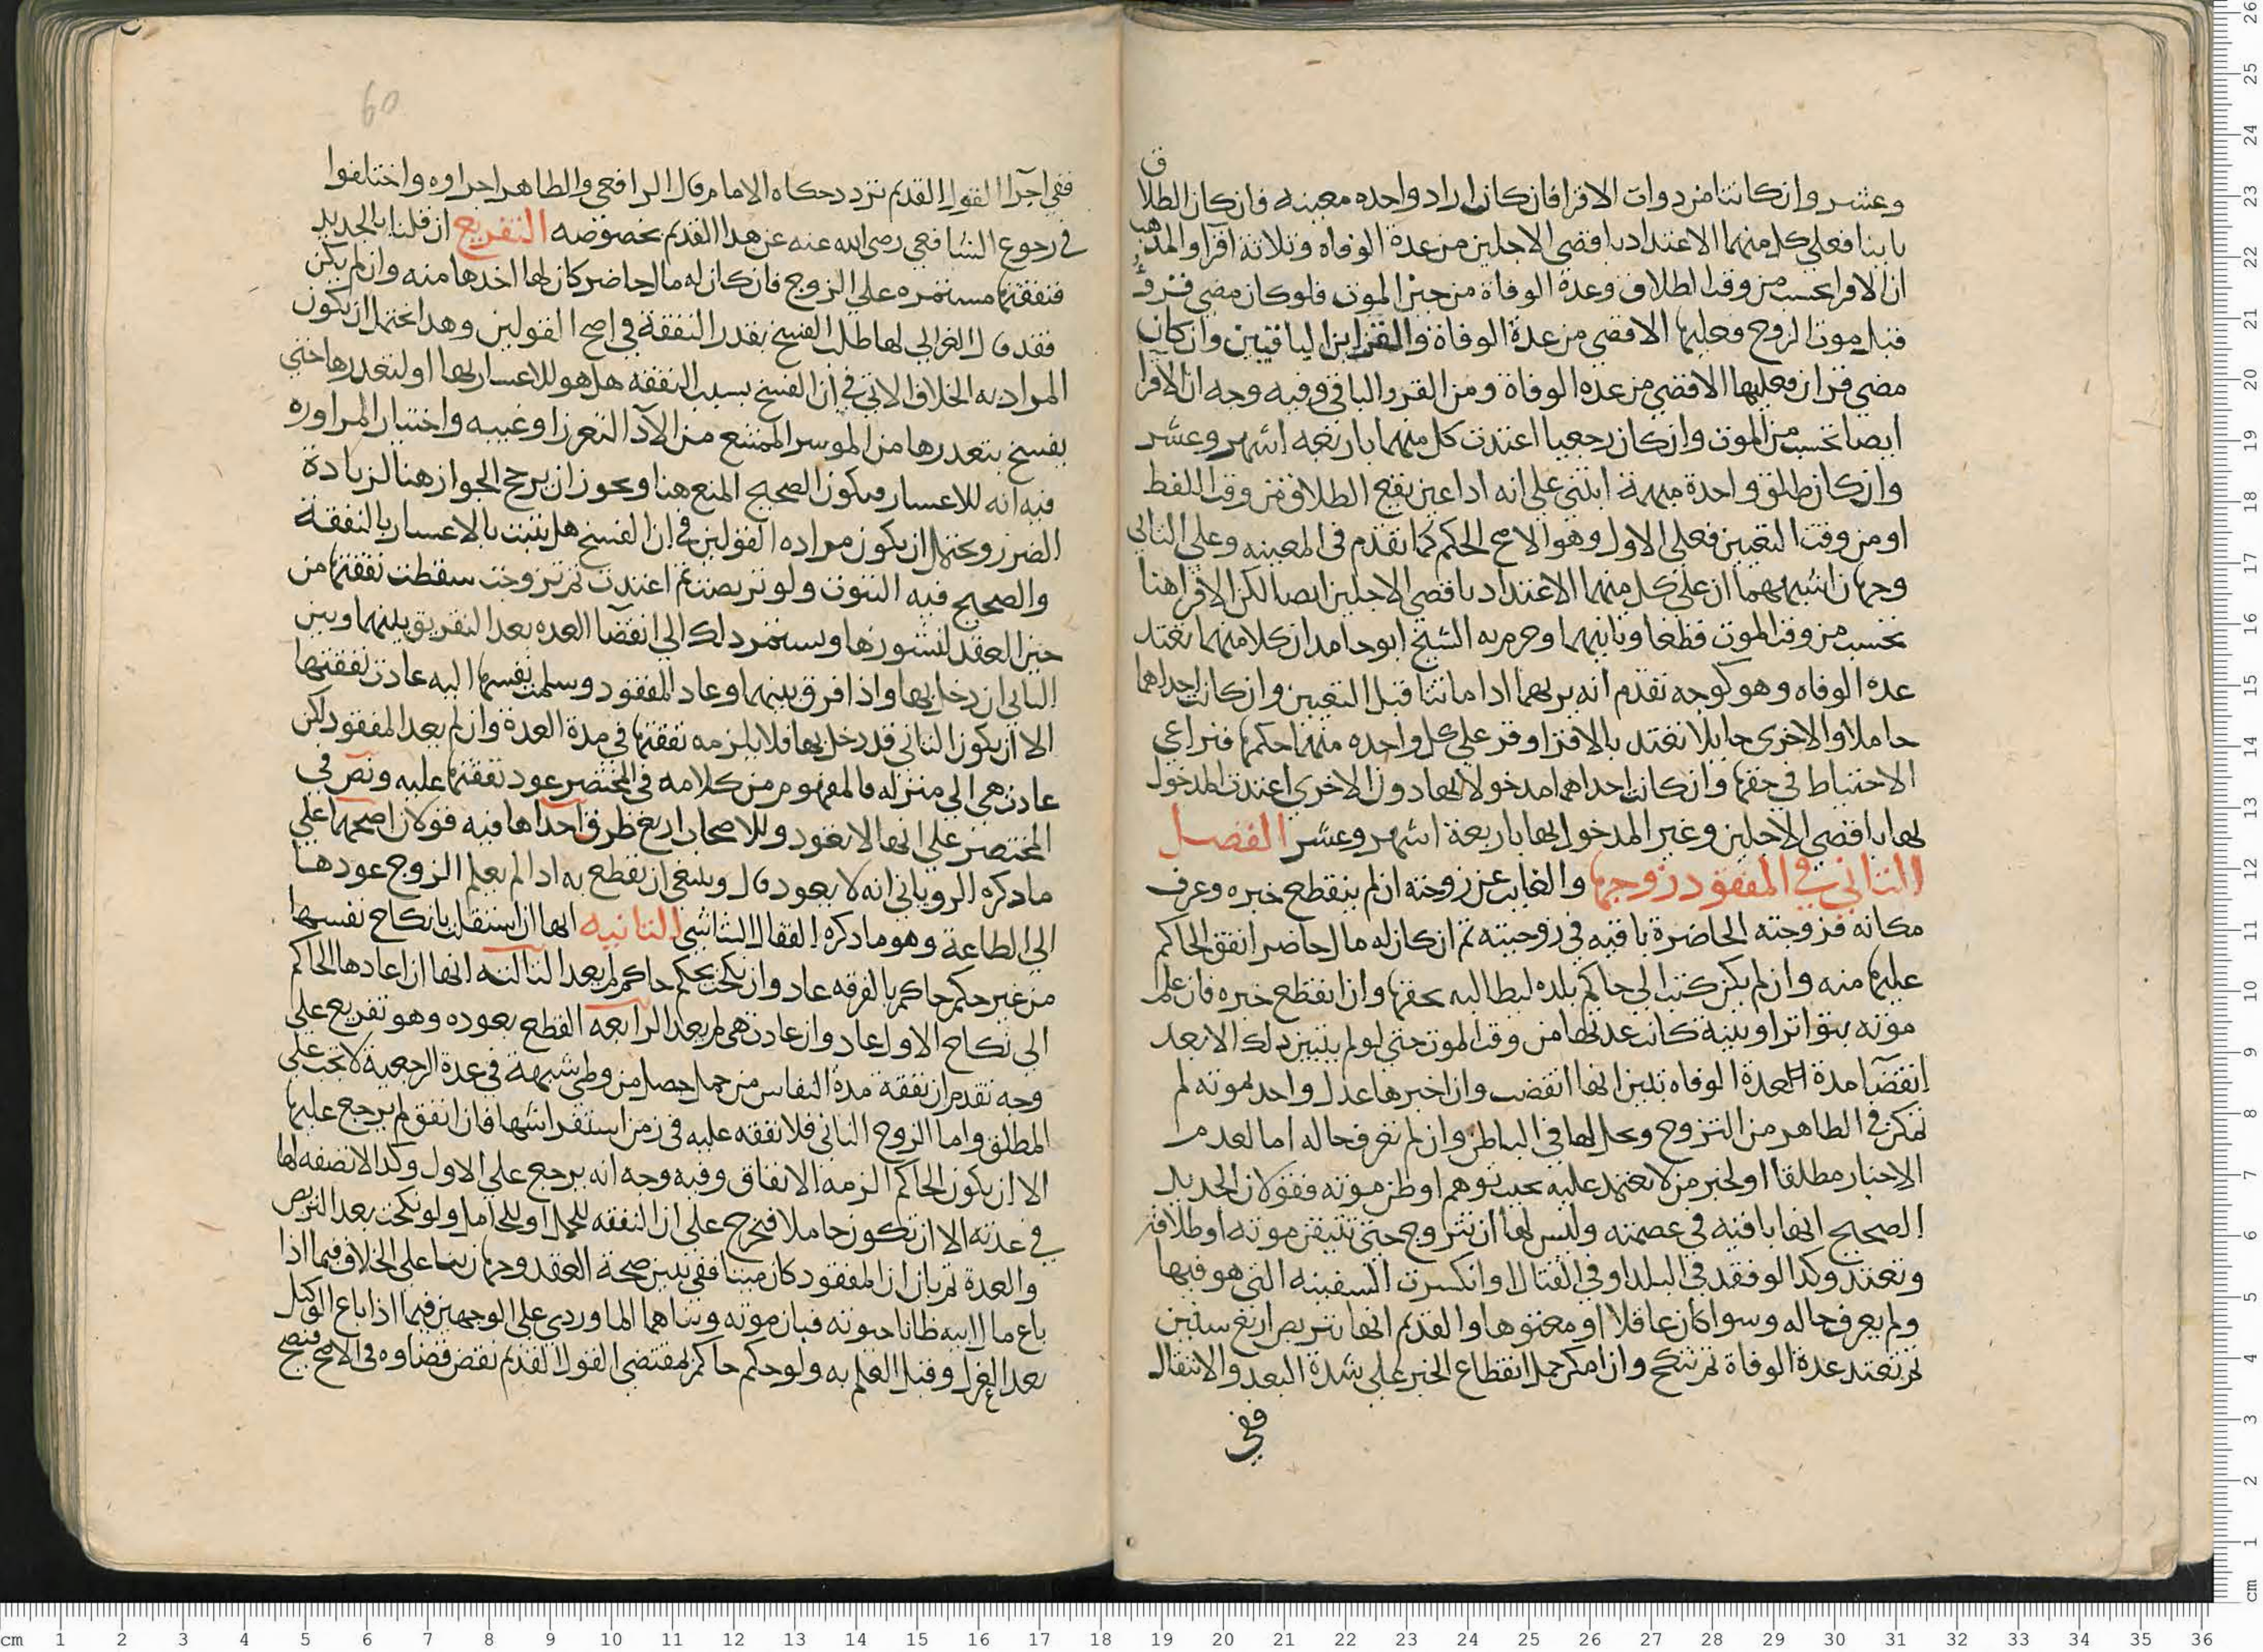 وعشر وان كانتا من دوات الاقرا فان كان اراد واحده معينه فان كان الطلاق
باينا فعلي كل منهما الاعتداد باقصى الاجلين من عدة الوفاه وثلاثة اقرا والمذهب
ان الاقرا تحسب من وقت الطلاق وعدة الوفاة من حين الموت فلو كان مضي قرؤ
قبل موت الزوج فعليها الاقصى من عدة الوفاة والقراين الباقيين وان كان
مضي قران فعليها الاقصى من عده الوفاة ومن القرو الباقي وفيه وجه ان الاقرا
ايضا تحسب من الموت وان كان رجعيا اعتدت كل منهما باربعه اشهر وعشر
وان كان طلق واحدة مبهمة ابتني علي انه اذا عين يقع الطلاق من وقت اللفظ
او من وقت التعيين فعلى الاول وهو الاصح الحكم كما تقدم في المعينه وعلي الثاني
وجهان اشبههما ان علي كل منهما الاعتداد باقصى الاجلين ايضا لكن الاقرا هنا
تحسب من وقت الموت قطعا وثانيهما وجزم به الشيخ ابو حامد ان كلا منهما تعتد
عدة الوفاه وهو كوجه تقدم انه يربهما ادا ماتتا قبل التعيين وان كانت احداهما
حاملا والاخرى حايلا تعتد بالاقرا وقر علي كل واحده منهما حكمها فتراعي
الاحتياط في حقها وان كانت احداهما مدخولا بها دون الاخرى اعتدت المدخول
بها باقصى الاجلين وغير المدخول بها باربعة اشهر وعشر الفصل
الثاني في المفقود زوجها والغايب عن زوجته ان لم ينقطع خبره وعرف
مكانه فزوجته الحاضرة باقيه في زوجيته ثم ان كان له مال حاضر انفق الحاكم
عليها منه وان لم يكن كتب الي حاكم بلده ليطالبه بحقها وان انقطع خبره فان علم
موته بتواتر او بينة كانت عدتها من وقت الموت حتي لو لم يتبين ذلك الا بعد
انقضآ مدة العدة الوفاه تبين انها انقضت وان اخبرها عدل واحد بموته لم
تمكن في الظاهر من التزوج وحل لها في الباطن وان لم تعرف حاله اما لعدم
الاخبار مطلقا او لخبر من لا تعتمد عليه بحيث توهم او ظن موته فقولان الجديد
الصحيح انها باقيه في عصمته وليس لها ان تتزوج حتي تتيقن موته او طلاقه
وتعتد وكدا لو فقد في البلد او في القتال او انكسرت السفينه التي هو فيها
ولم يعرف حاله وسوا كان عاقلا او معتوها والقديم انها تتربص اربع سنين
ثم تعتد عدة الوفاة ثم تنكح وان امكن حمل انقطاع الخبر علي شدة البعد والانتقال
ففي
60
ففي اجرآ القول القديم تردد حكاه الامام قال الرافعي والظاهر اجراوه واختلفوا
في رجوع الشافعي رضي الله عنه عن هدا القديم بخصوصه التفريع ان قلنا بالجديد
فنفقتها مستمره علي الزوج فان كان له مال حاضر كان لها اخدها منه وان لم يكن
فقد قال الغزالي لها طلب الفسخ بقدر النفقة في اصح القولين وهدا يحتمل ان يكون
المراد به الخلاف الاتي في ان الفسخ بسبب النفقه هل هو للاعسار بها او لتعدرها حتي
يفسخ بتعدرها من الموسر الممتنع من الادآ لتعزز او غيبه واختيار المراوره
فيه انه للاعسار فيكون الصحيح المنع هنا ويجوز ان يرجح الجواز هنا لزيادة
الضرر ويحتمل ان يكون مراده القولين في ان الفسخ هل يثبت بالاعسار بالنفقة
والصحيح فيه الثبوت ولو تربصت ثم اعتدت ثم تزوجت سقطت نفقتها من
حين العقد لنشوزها ويستمر دلك الي انقضآ العده بعد التفريق بينهما وبين
الثاني ان دخل بها واذا فرق بينهما وعاد المفقود وسلمت نفسها اليه عادت نفقتها
الا ان يكون الثاني قد دخل بها فلا يلزمه نفقتها في مدة العدة وان لم يعد المفقود لكن
عادت هي الي منزله فالمفهوم من كلامه في المختصر عود نفقتها عليه ونص في
المختصر علي انها لا تعود وللاصحاب اربع طرق احداها فيه قولان اصحهما علي
مادكره الروياني انه لا يعود قال وينبغي ان تقطع به ادا لم يعلم الزوج عودها
الي الطاعة وهو مادكره القفال الشاشي الثانيه انها ان استقلت بانكاح نفسها
من غير حكم حاكم بالفرقه عاد وان نكحت بحكم حاكم لم يعد الثالثه انها ان اعادها الحاكم
الي نكاح الاول عاد وان عادت هي لم يعد الرابعه القطع بعوده وهو تفريع علي
وجه تقدم ان نفقة مدة النفاس من حمل حصل من وطي شبهة في عدة الرجعية لا تجب علي
المطلق واما الزوج الثاني فلا نفقه عليه في زمن استفراشها فان انفق لم يرجع عليها
الا ان يكون الحاكم الزمه الانفاق وفيه وجه انه يرجع علي الاول وكدا لا نصفه لها
في عدته الا ان تكون حاملا فتخرج علي ان النفقه للحمل او للحامل ولو نكحت بعد التربص
والعدة ثم بان ان المفقود كان ميتا ففي تبين صحة العقد وجهان بناء علي الخلاف فيما اذا
باع مال ابيه ظانا حيوته فبان موته وبناهما الماوردي علي الوجهين فيما اذا باع الوكيل
بعد العزل وقبل العلم به ولو حكم حاكم بمقتضي القول القديم نقض قضاوه في الاصح فنصح